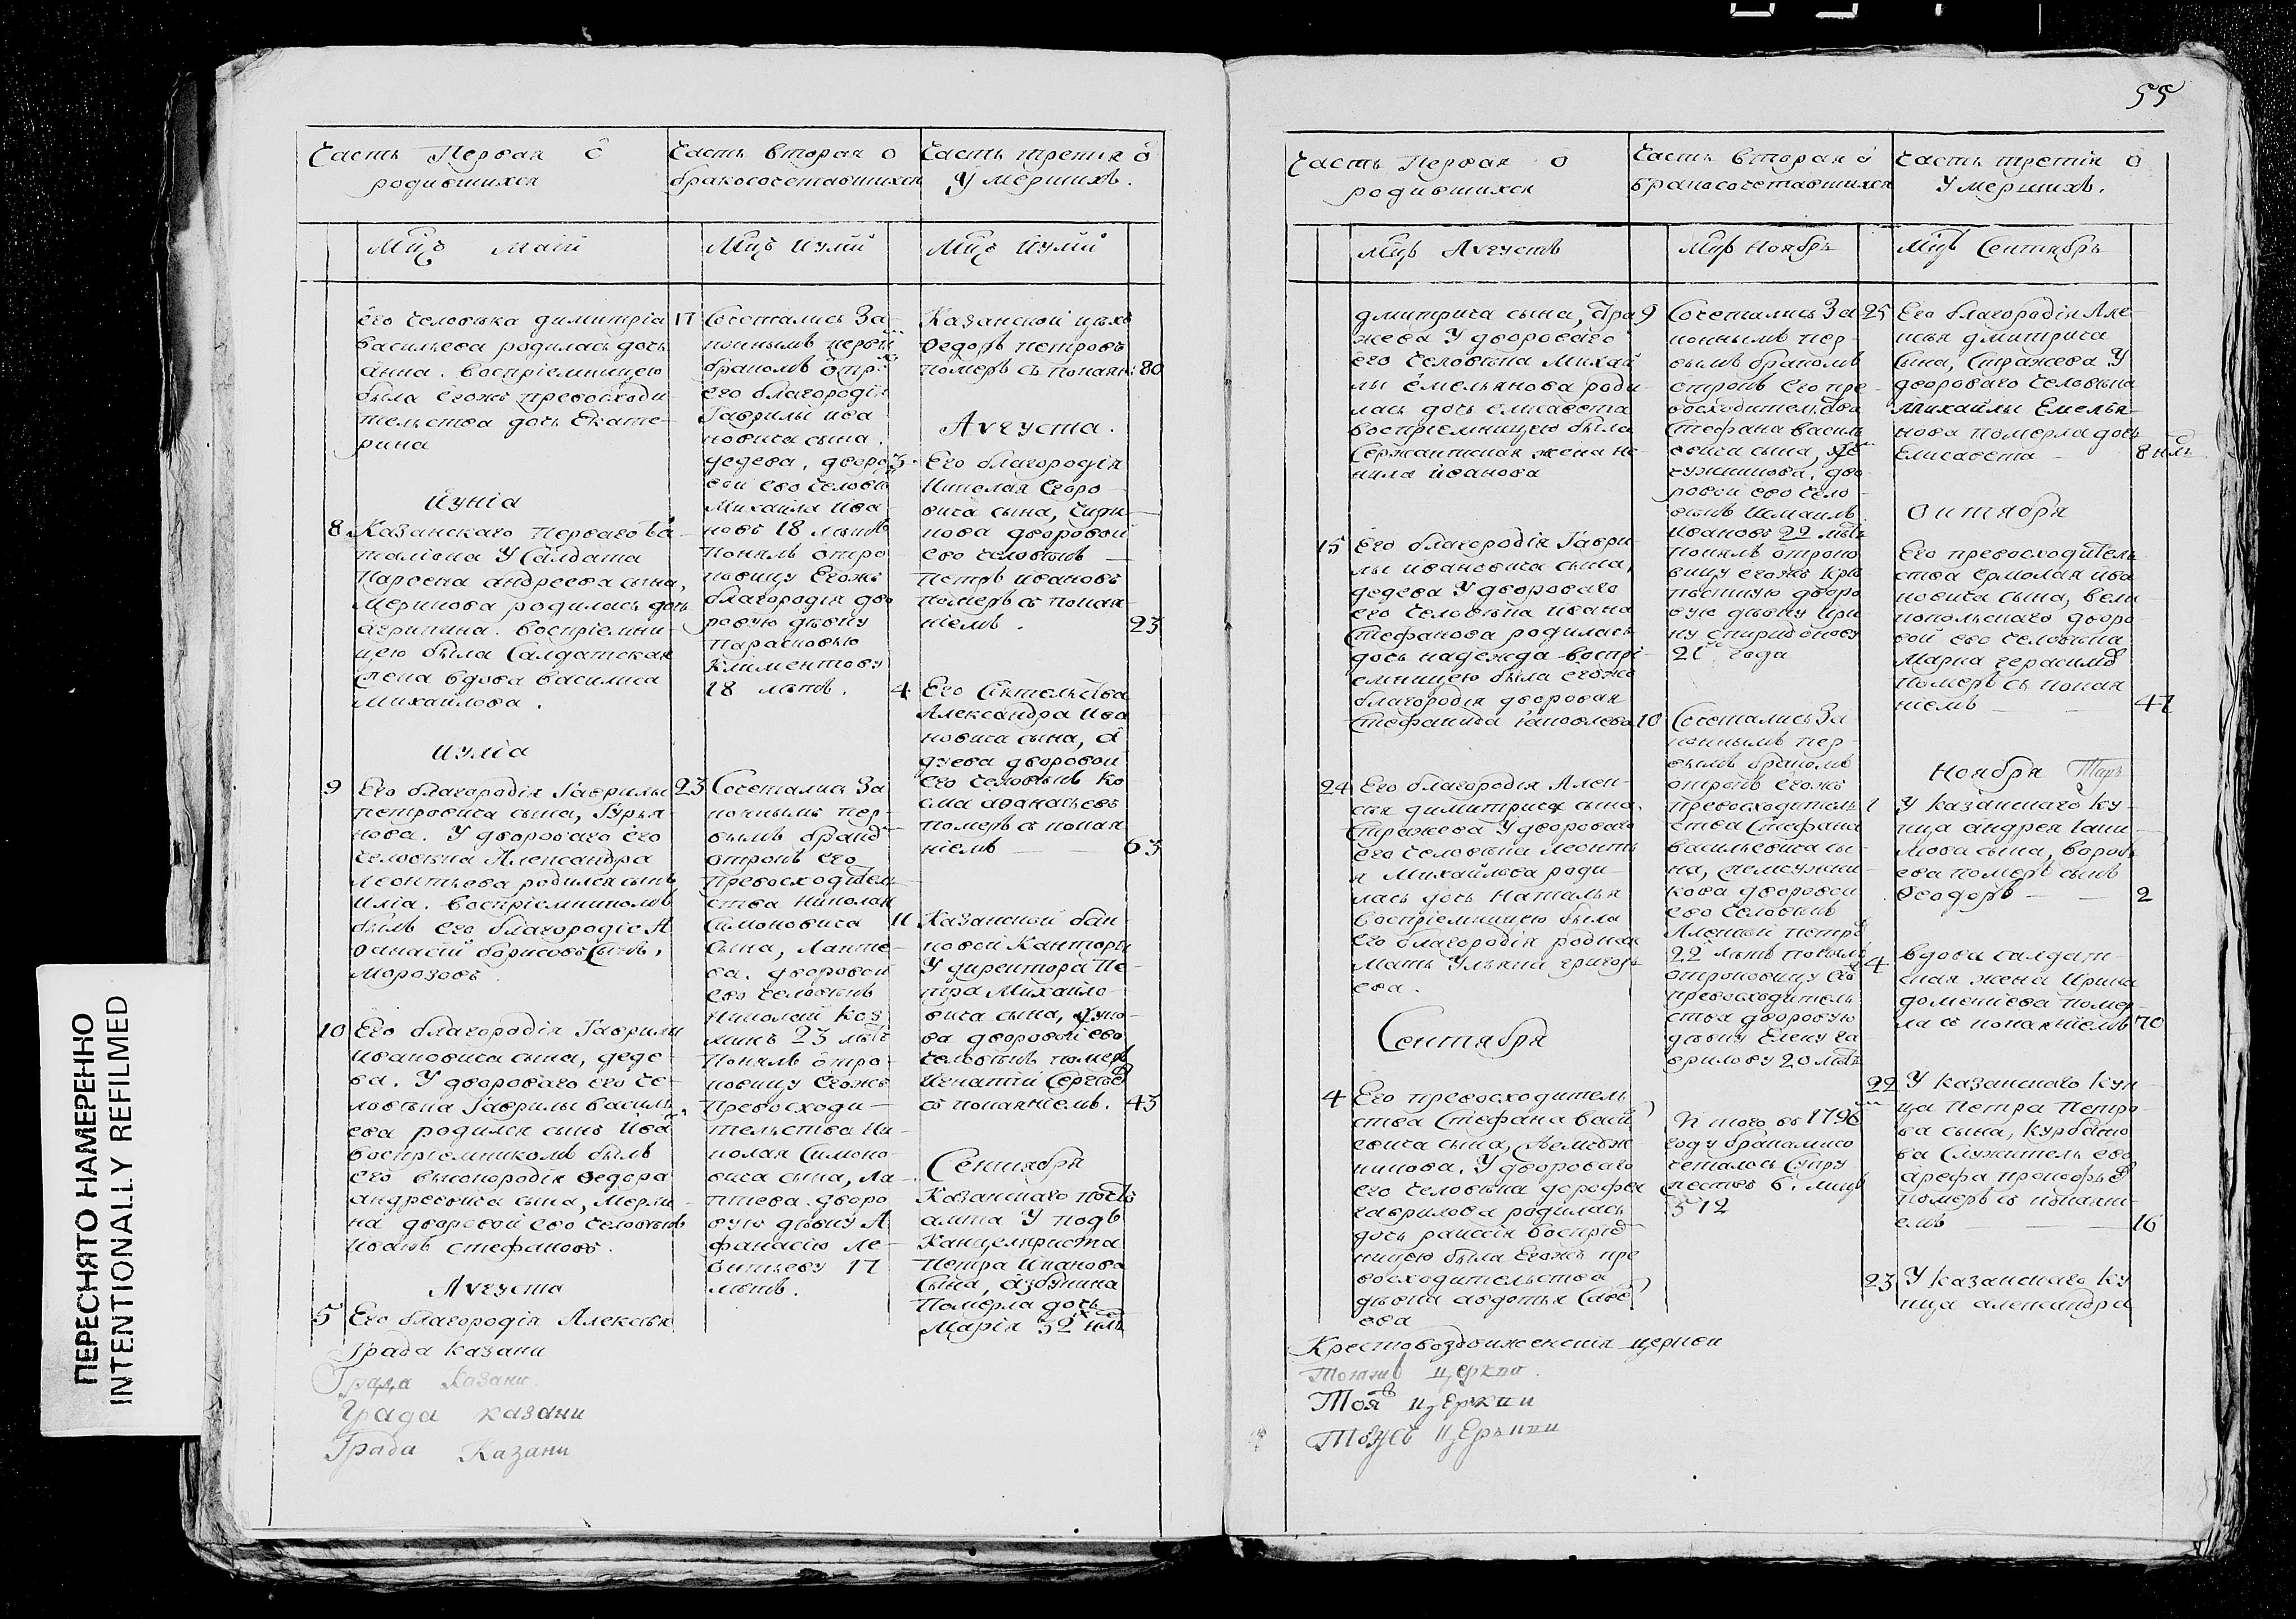 55
Часть Первая о
родившихся
Мцъ Маій
его человека димитріа
васильева родилась дочь
анна. воспріемницею
была егожъ превосходи
тельства дочь Екате-
рина
Іуніа
8 Казанскаго перваго ба
таліона У Салдата
Парѳена андреева сына,
Меринова родилась дочь
агрипина. воспріемни
цею была Салдатская
жена вдова василиса
михайлова.
Иуліа
9 Его благородія Гаврилы
петровича сына, Гурья
нова. У двороваго его
человека Александра
леонтьева родился сынъ
иліа. воспріемникомъ
былъ его благородіе А
ѳанасій борисовъ сынъ,
морозовъ
10 Его благородія Гаврилы
ивановича сына, деде-
ва. У двороваго его че-
ловека Гаврилы василь
ева родился сынъ ива
воспріемникомъ былъ
его высокородія ѳедора
андреевича сына, мерли
на дворовой его человекъ
иванъ стефановъ.
Августа
5 Его благородія Алексея
Часть вторая о
бракосочетавшихся
Мцъ Иулій
17 Сочетались За
коннымъ первы
бракомъ отро
его благородія
Гаврилы ива
новича сына.
дедева, дворо
вой его человек
Михаила Ива
новъ 18 летъ
понялъ отро
ковицу Егожъ
благородія дво
ровую девку
парасковью
Климентову
18 летъ.
23 Сочетались За
конымъ пер-
вымъ брако
отрокъ его
превосходитель
ства николая
Симоновича
сына, лапте-
ва. дворовой
его человекъ
Николай Коз
минъ 23 летъ
понялъ отро-
ковицу Егожъ
превосходи-
тельства Ни-
колая Симоно-
вича сына, ла-
птева дворо
вую девку А
фанасію ле-
онтьеву 17
летъ.
Часть третія о
Умершихъ.
Мцъ Иулій
Казанской цехо
Ѳедоръ петровъ
померъ съ покаян 80
Августа.
3 Его благородія
Николая Егоро
вича сына, Чири-
кова дворовой
его человекъ
петръ ивановъ
померъ с покая
ніемъ. 23
4 Его Сіятельства
Александра Ива
новича сына, а
дуева дворовой
Его человекъ ко-
сма аѳанасьевъ
померъ с покая
ніемъ 63
11 Казанской бан
ковой Канторы
У директора Пе-
тра Михайло-
вича сына,
ва дворовой его
человекъ померъ
Игнатій Сергее
съ покаяніемъ. 43
Сентября
Казанскаго почт
амта У подъ
Канцеляриста
петра Иванова
сына, азбукина
померла дочь
Марія 32 нлъ
Града казани
Града Казани
Града казани
Града Казани
Часть Первая о
родившихся
Мцъ Августъ
дмитрича сына, Стра
жева У двороваго
его человека Михай
лы Емельянова роди
лась дочь елисавета
воспріемницею была
Сержантская жена не
нила иванова
15 Его благородія Гаври-
лы ивановича сына,
дедева У двороваго
его человека ивана
стефанова родилась
дочь надежда воспрі-
емницею была егожъ
благородія дворовая
стефанида Іаковлева
24 Его благородія Алек-
сея димитрича сына.
Стражева У двороваго
его человека леонть
я Михайлова роди
лась дочь Наталья
воспріемницею была
его благородія родная
мать Ульяна григорь
ева.
Сентября
4 Его превосходитель
ства Стефана васи
евича сына, Жемчуж
никова. У двороваго
его человека дорофея
гаврилова родилась
дочь раиссія воспріе
ницею была Егожъ пре
восходительства
девка авдотья Саве
ова
Часть вторая о
бракосочетавшихся
Мцъ Ноябрь
9 Сочетались За
коннымъ пер-
вымъ бракомъ
отрокъ его пре-
восходительства
Стефана василь
евича сына, Же
чужникова. дво-
ровой его чело-
векъ Измаилъ
ивановъ 22 летъ
понялъ отроко
вицу егожъ кре
постную дворо
вую девку ири
ну спиридонову
21 года
10 Сочетались За
коннымъ пер-
вымъ бракомъ
отрокъ егожъ
превосходитель
ства Стефана
васильевича сы-
на, жемчужни-
кова дворовой
его человекъ
Алексей петро
22 летъ понялъ
отроковицу его
превосходитель
ства дворовую
девку Елену га
врилову 20 летъ
И того въ 1796
году бракамисо
четалось Супру
жествъ 6. лицъ
12
Часть третія о
Умершихъ.
Мцъ Сентябрь
25 Его благородія Але
ксея дмитрича
сына, Стражева У
двороваго человека
михаилы Емелья-
нова померла дочь
Елисавета 8 нлъ
Октября
Его превосходитель
ства ермолая ива
новича сына, вели
копольскаго дворо-
вой его человека
Марка герасимо
померъ съ покая
ніемъ 47
Ноября
1 У казанскаго ку-
пца андрея
мова сына, вороб
ева померъ сынъ
Ѳеодоръ 2
4 вдова салдат-
ская жена Ирина
доментіева помер-
ла съ покаяніемъ 70
22 У казанскаго куп-
ца петра петро
ва сына, курбато
ва служитель его
арефа прокофье
померъ с покаяні-
емъ 16
23 У казанскаго ку
пца александра
Крестовоздвиженскія церкви
Тояже церкви.
Тоя церкви
Тояже церкви
ПЕРЕСНЯТО НАМЕРЕННО
INTENTIONALLY REFILMED